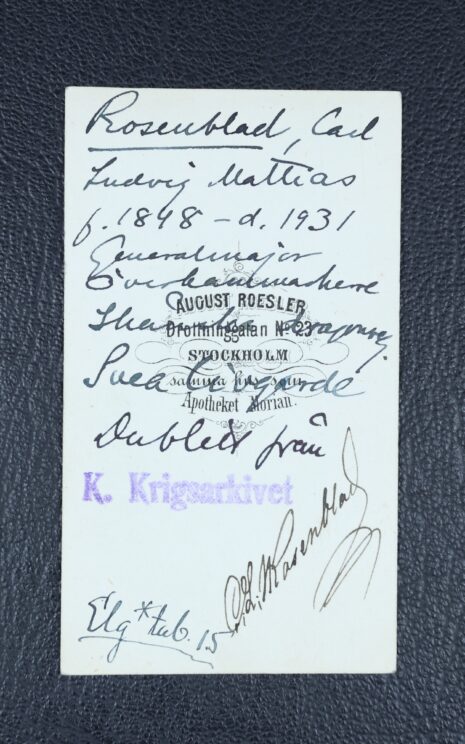 Rosenblad, Carl
Ludvig Mattias
f. 1848 - d. 1931
Generalmajor
Överkammarherre
AUGUST ROESLER
Drottninggatan No 23
STOCKHOLM
Svea Livgarde
samma hus som
Apotheket Morian.
Dublett från
K. Krigsarkivet
C. L. M. Rosenblad
Elg * tab. 15